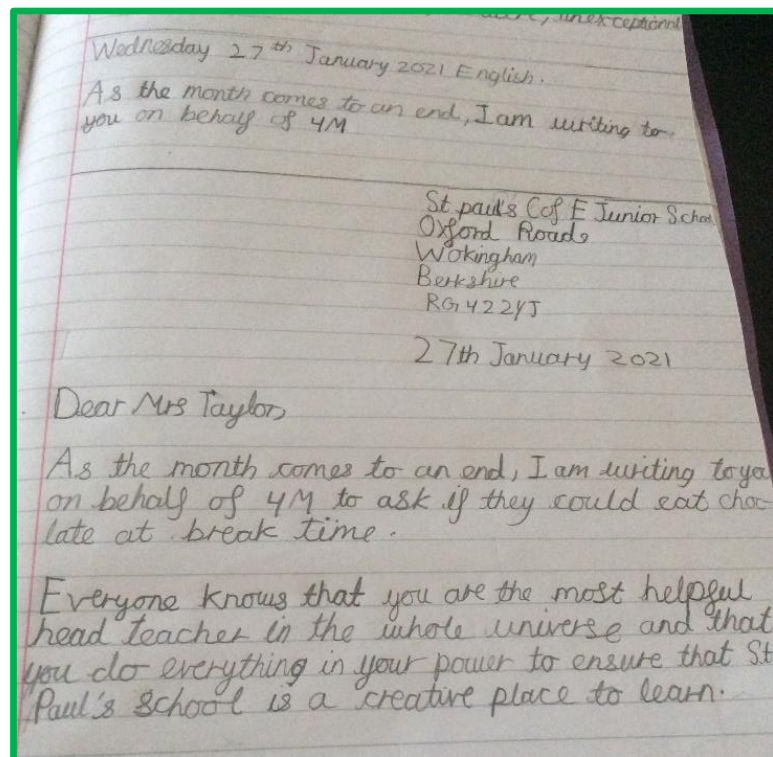 unexceptional
Wednesday 27th January 2021 English.
As the month comes to an end, I am writing to
you on behalf of 4M
St paul's C of E Junior School
Oxford Road,
Wokingham
Berkshire
RG41 2YJ
27th January 2021
Dear Mrs Taylor,
As the month comes to an end, I am writing to you
on behalf of 4M to ask if they could eat choc-
late at break time.
Everyone knows that you are the most helpful
head teacher in the whole universe and that
you do everything in your power to ensure that St
Paul's School is a creative place to learn.